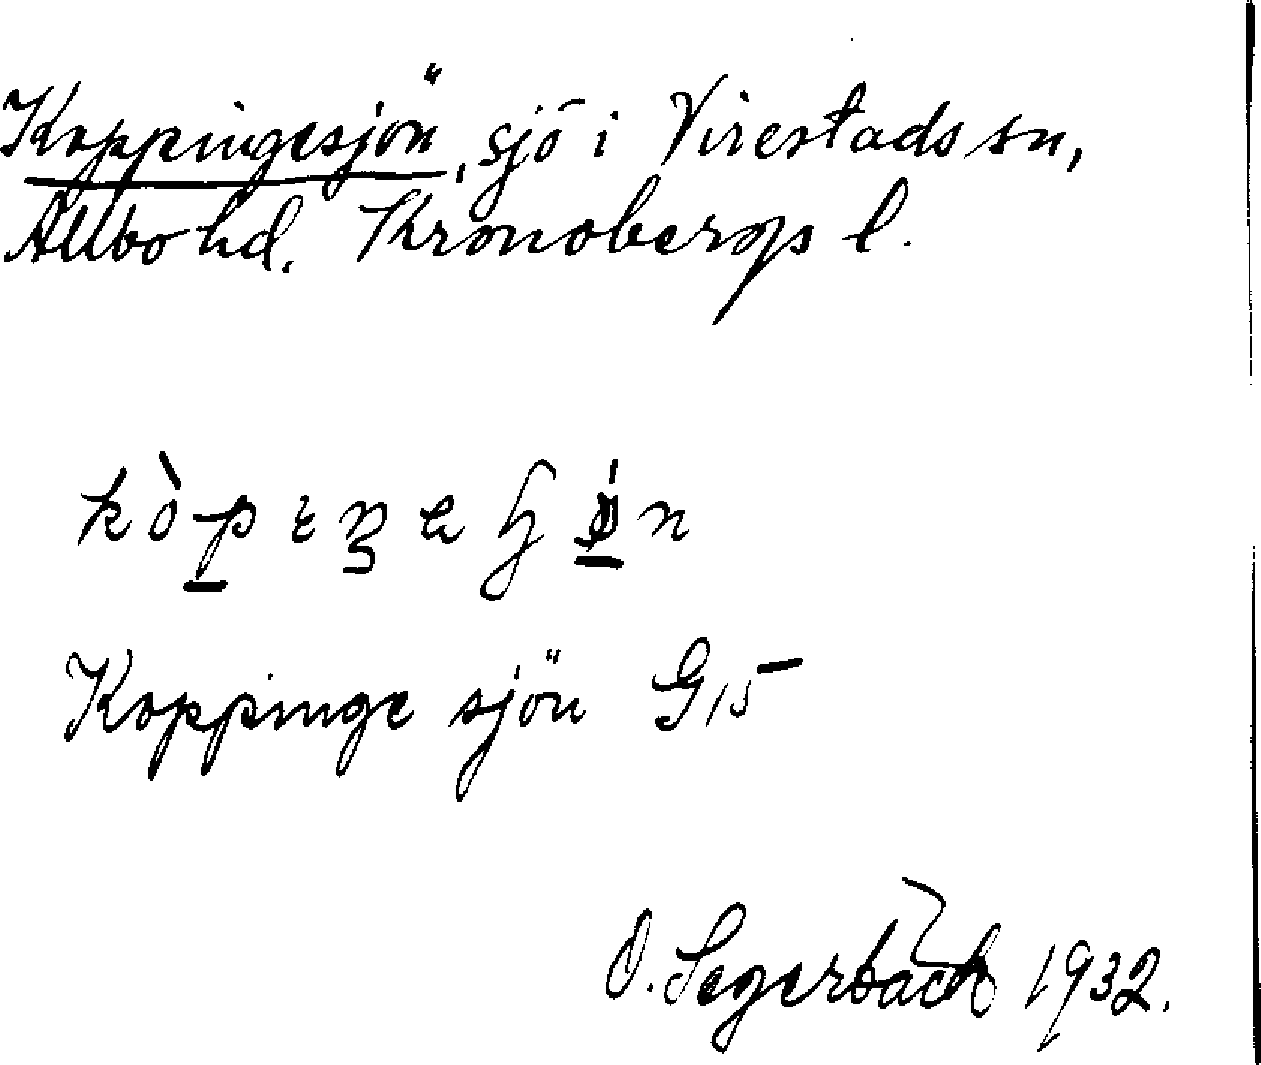 Koppingesjön, sjö i Virestads sn,
Allbo hd. Kronobergs l.
Koppinge sjön G15
O. Segerbäck 1932.